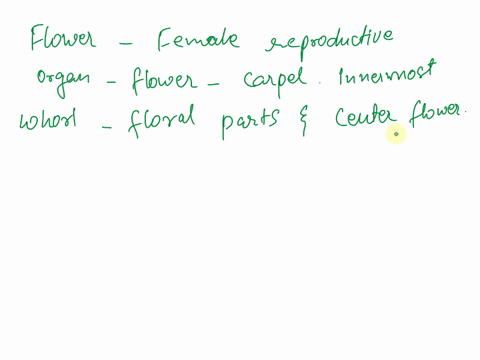 Flower - Female reproductive
organ - flower - carpel. Innermost
whorl - floral parts & center flower.